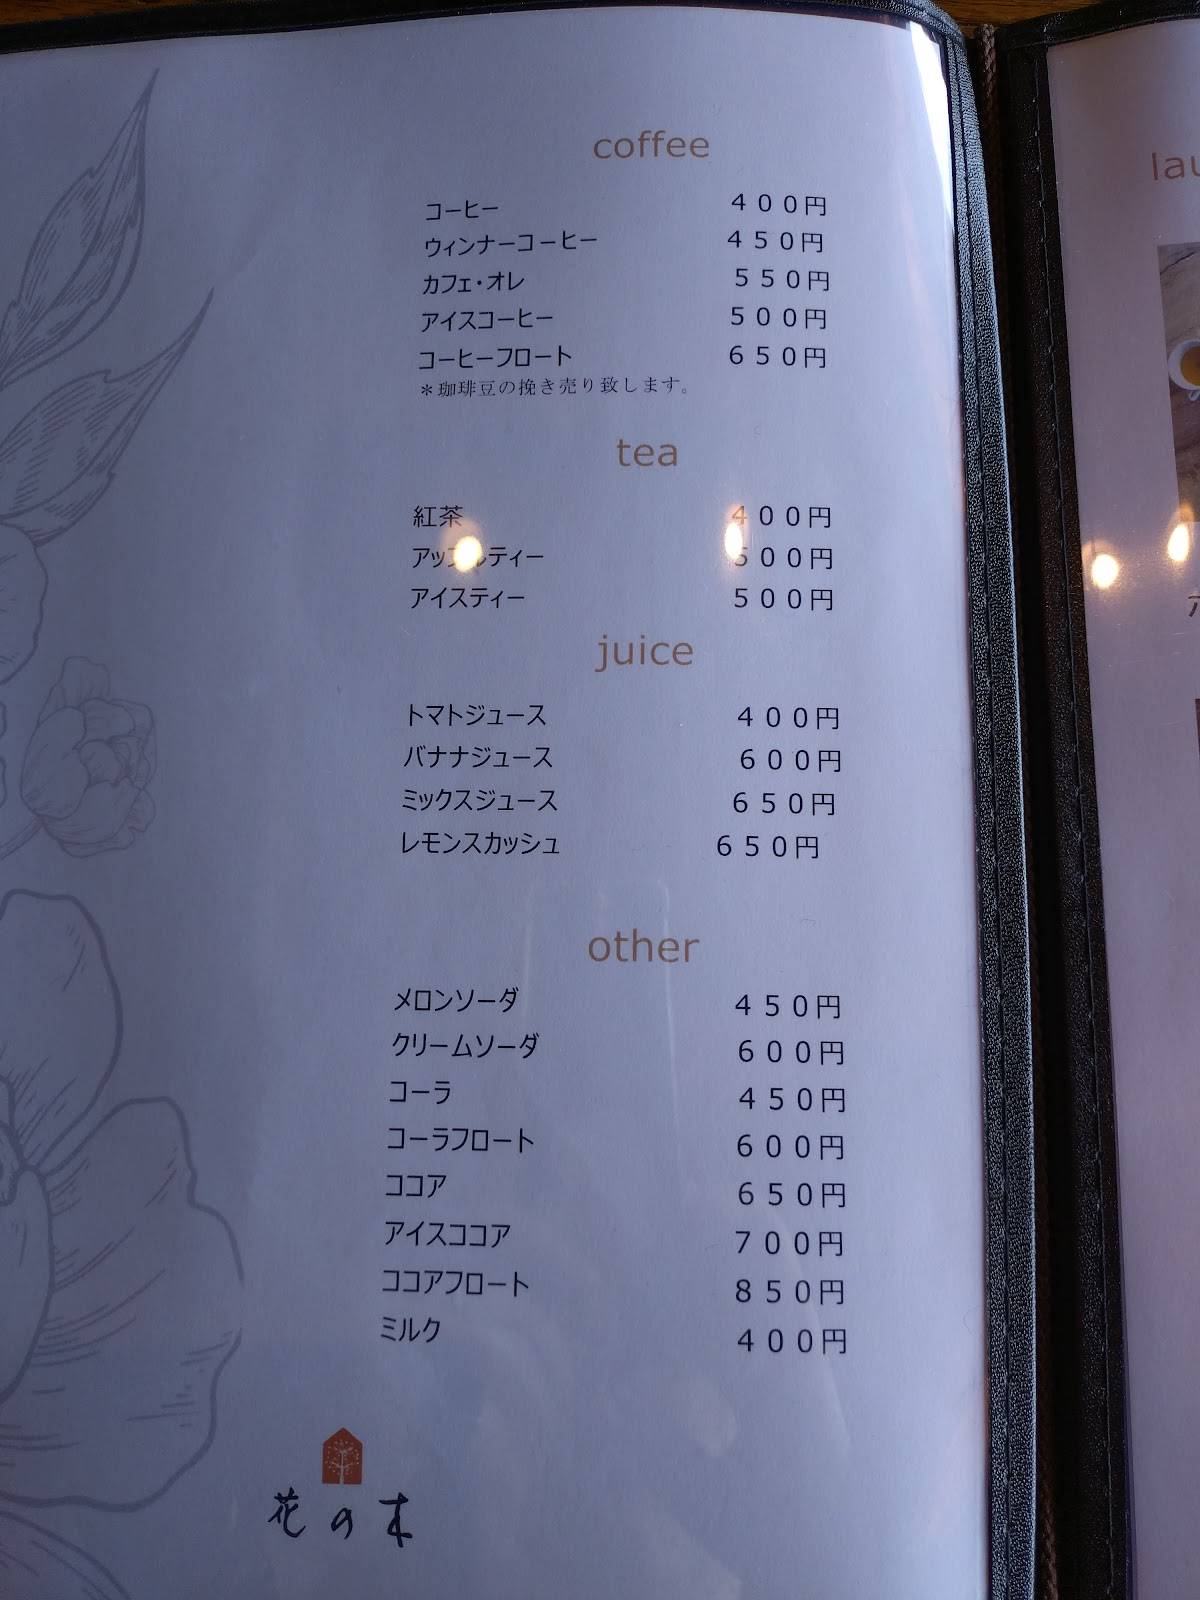 coffee
コーヒー 400円
ウィンナーコーヒー 450円
カフェ・オレ 550円
アイスコーヒー 500円
コーヒーフロート 650円
＊珈琲豆の挽き売り致します。
tea
紅茶 400円
アップルティー 500円
アイスティー 500円
juice
トマトジュース 400円
バナナジュース 600円
ミックスジュース 650円
レモンスカッシュ 650円
other
メロンソーダ 450円
クリームソーダ 600円
コーラ 450円
コーラフロート 600円
ココア 650円
アイスココア 700円
ココアフロート 850円
ミルク 400円
花の木